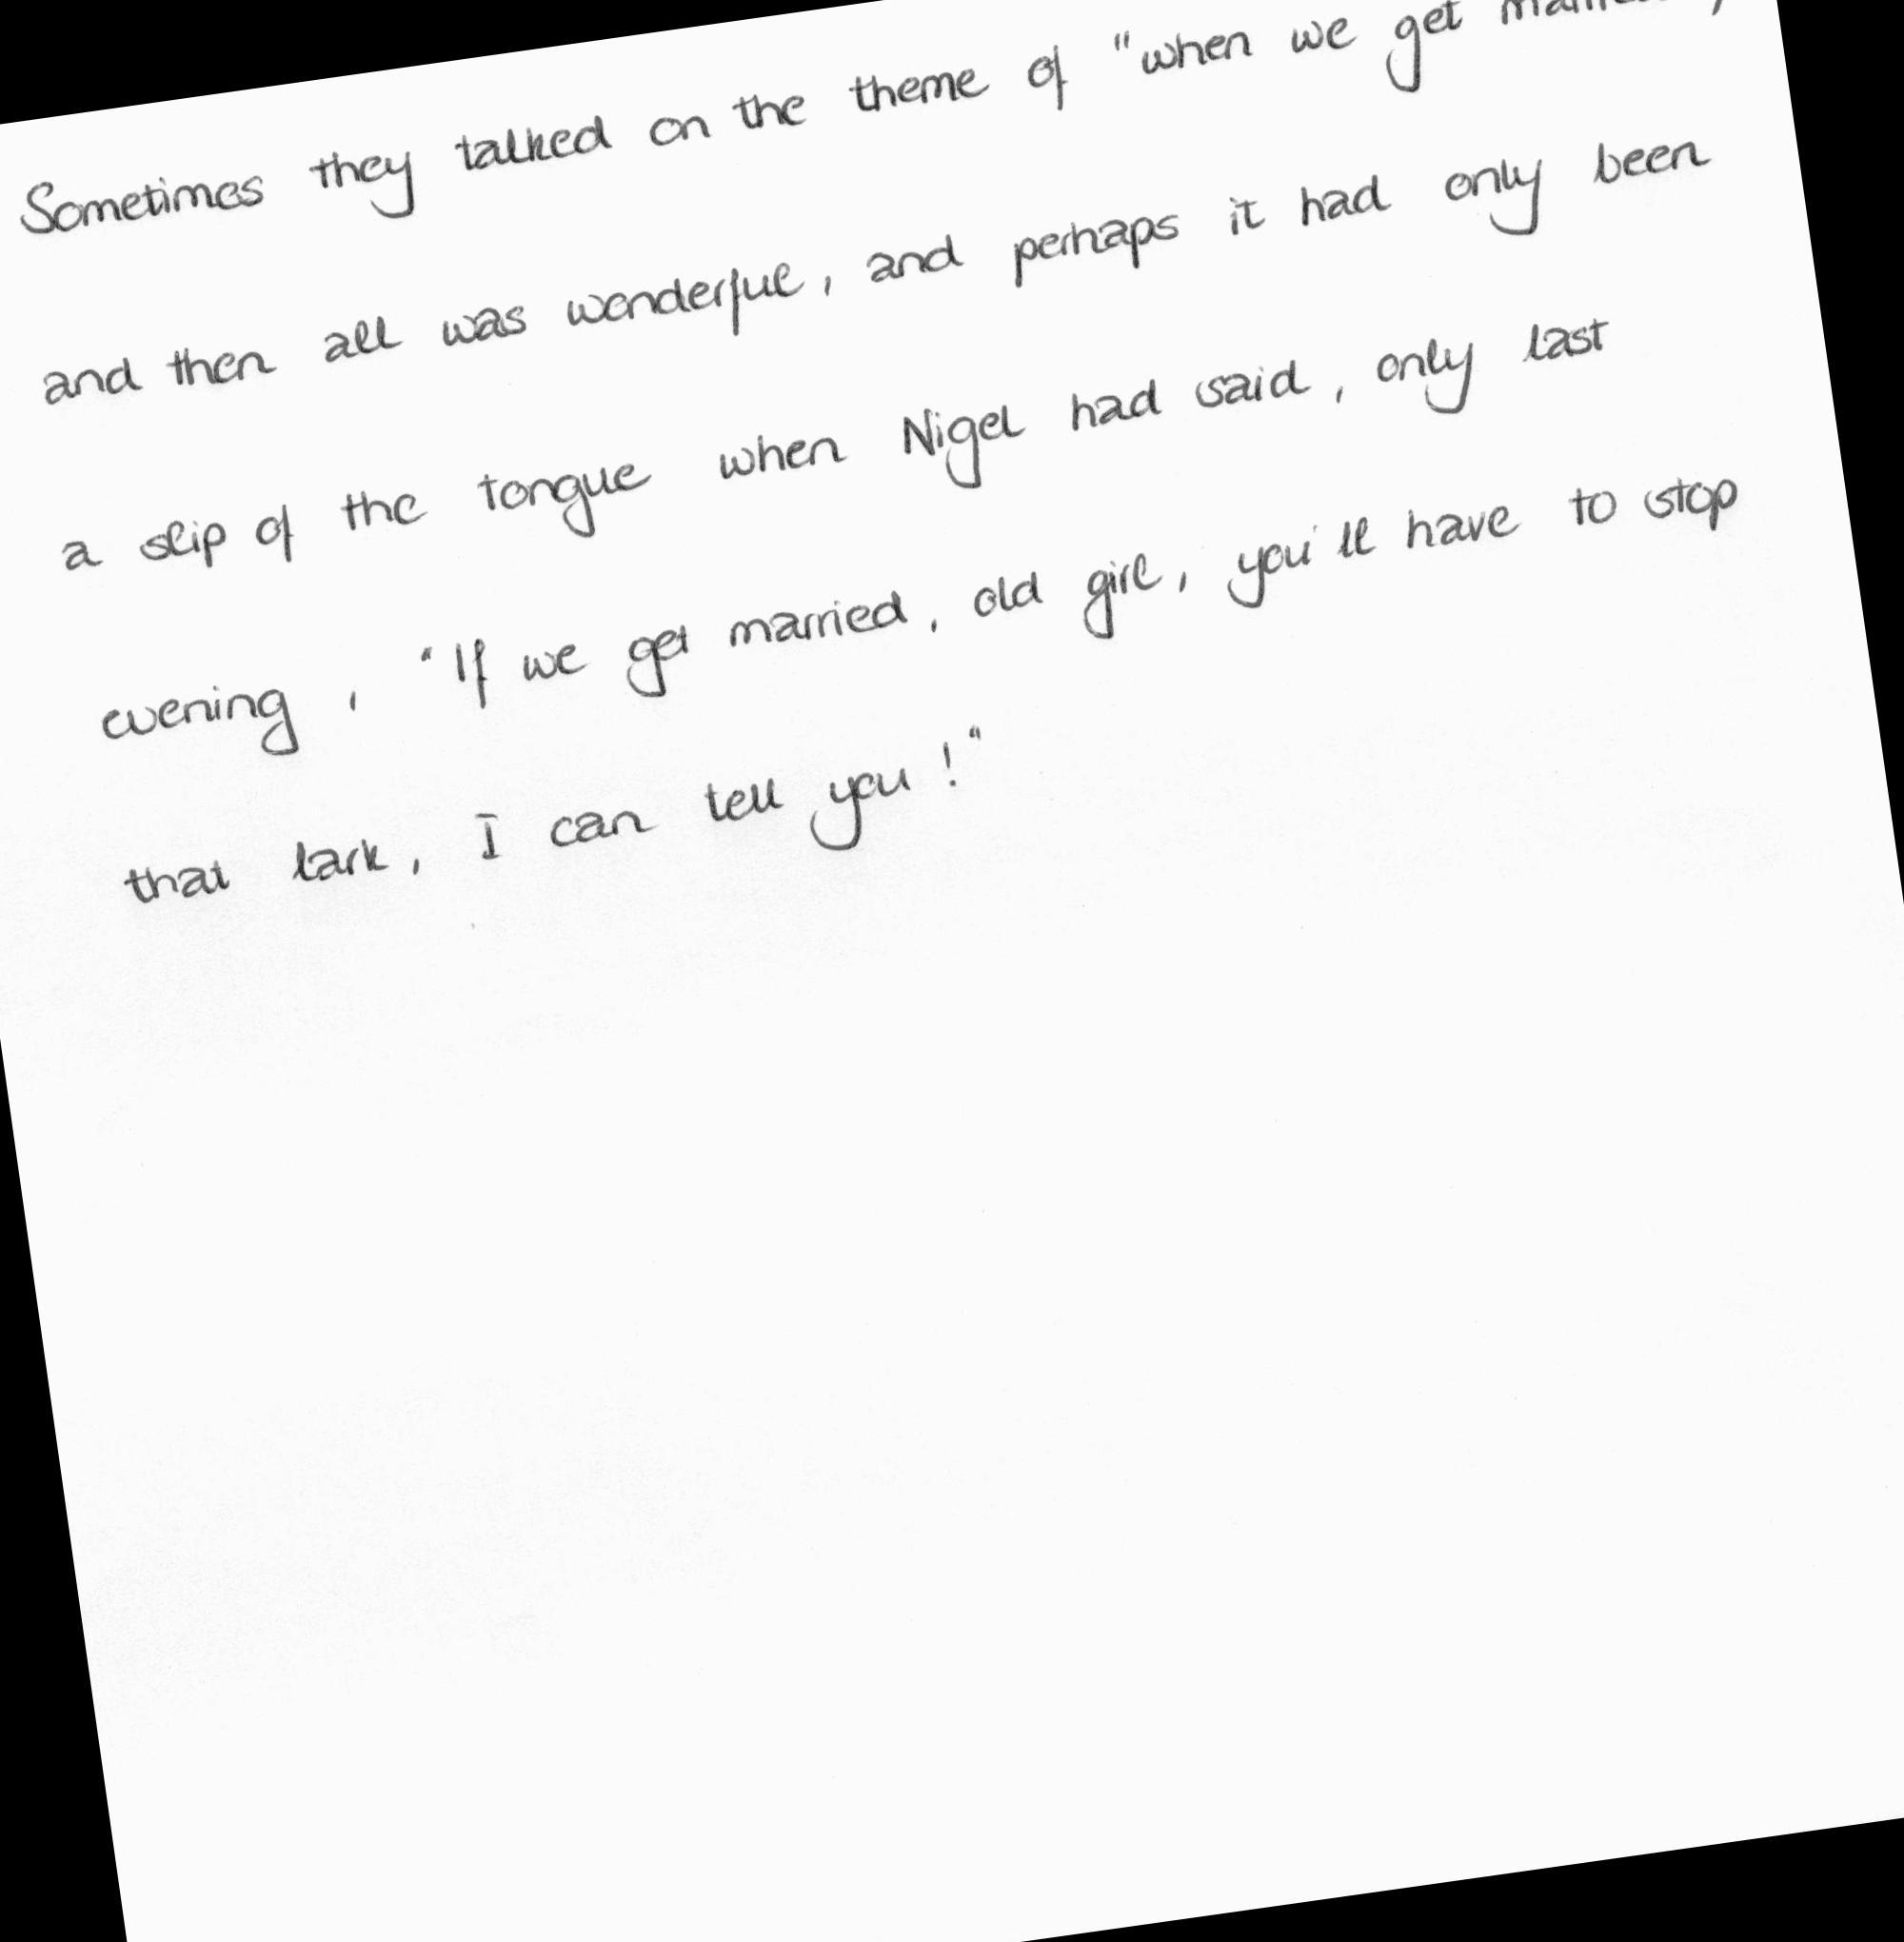 Sometimes they talked on the theme of "when we get
and then all was wonderful, and perhaps it had only been
a slip of the tongue when Nigel had said, only last
evening, "If we get married, old girl, you'll have to stop
that lark, I can tell you!"